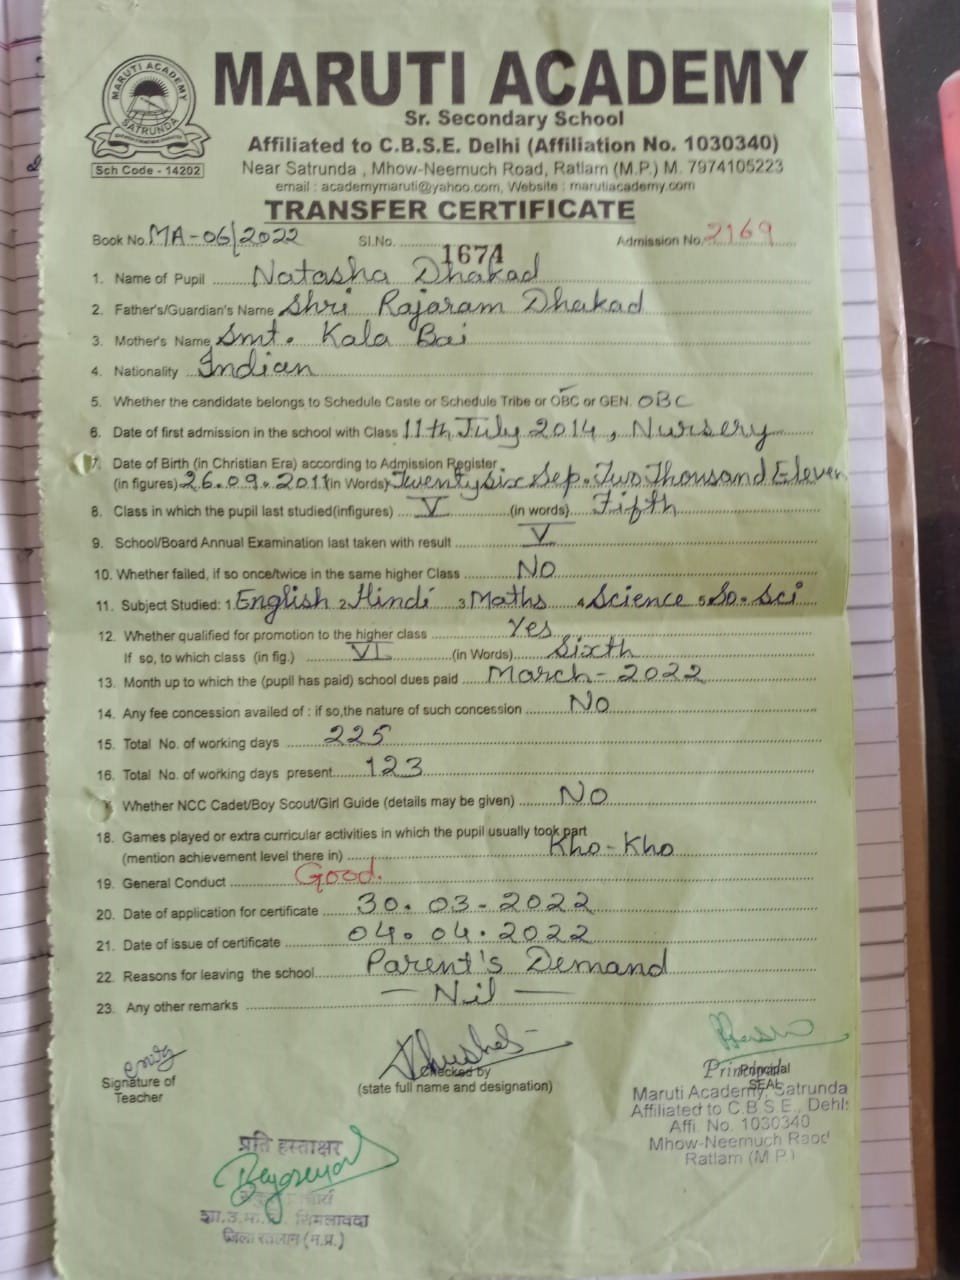 MARUTI ACADEMY
SATRUNDA
Sch Code - 14202
MARUTI ACADEMY
Sr. Secondary School
Affiliated to C.B.S.E. Delhi (Affiliation No. 1030340)
Near Satrunda , Mhow-Neemuch Road, Ratlam (M.P.) M. 7974105223
email : academymaruti@yahoo.com, Website : marutiacademy.com
TRANSFER CERTIFICATE
Book No. MA-06/2022 Sl.No. 1674 Admission No. 2169
1. Name of Pupil Natasha Dhakad
2. Father's/Guardian's Name Shri Rajaram Dhakad
3. Mother's Name Smt. Kala Bai
4. Nationality Indian
5. Whether the candidate belongs to Schedule Caste or Schedule Tribe or OBC or GEN. OBC
6. Date of first admission in the school with Class 11th July 2014, Nursery
7. Date of Birth (in Christian Era) according to Admission Register
(in figures) 26.09.2011 (in Words) Twenty six Sep. Two Thousand Eleven
8. Class in which the pupil last studied(infigures) V (in words) Fifth
9. School/Board Annual Examination last taken with result V
10. Whether failed, if so once/twice in the same higher Class No
11. Subject Studied: 1 English 2 Hindi 3 Maths 4 Science 5 So. Sci
12. Whether qualified for promotion to the higher class Yes
If so, to which class (in fig.) VI (in Words) Sixth
13. Month up to which the (pupil has paid) school dues paid March - 2022
14. Any fee concession availed of : if so,the nature of such concession No
15. Total No. of working days 225
16. Total No. of working days present 123
Whether NCC Cadet/Boy Scout/Girl Guide (details may be given) No
18. Games played or extra curricular activities in which the pupil usually took part
(mention achievement level there in) Kho-Kho
19. General Conduct Good.
20. Date of application for certificate 30.03-2022
21. Date of issue of certificate 04.04.2022
22. Reasons for leaving the school Parent's Demand
23. Any other remarks — Nil —
Signature of
Teacher
Checked by
(state full name and designation)
Principal
Principal
SEAL
Maruti Academy, Satrunda
Affiliated to C.B.S.E., Dehli
Affi. No. 1030340
Mhow-Neemuch Raod
Ratlam (M.P.)
प्रति हस्ताक्षर
सिमलावदा
जिला रतलाम (म.प्र.)